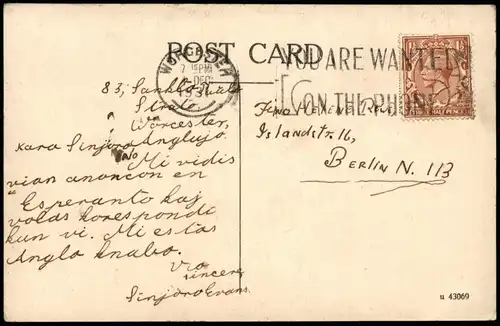 POST CARD
WORCESTER
7 15 PM
DEC
193
YOU ARE WANTED
ON THE PHONE
83,
Worcester,
Anglujo.
Kara Sinjoro
Mi vidis
vian anoncon en
"Esperanto kaj
volas korespondi
kun vi. Mi estas
Angla knabo.
Via
sincere,
Sinjoro Evans.
Islandstr. 16,
BERLIN N. 113
u 43069